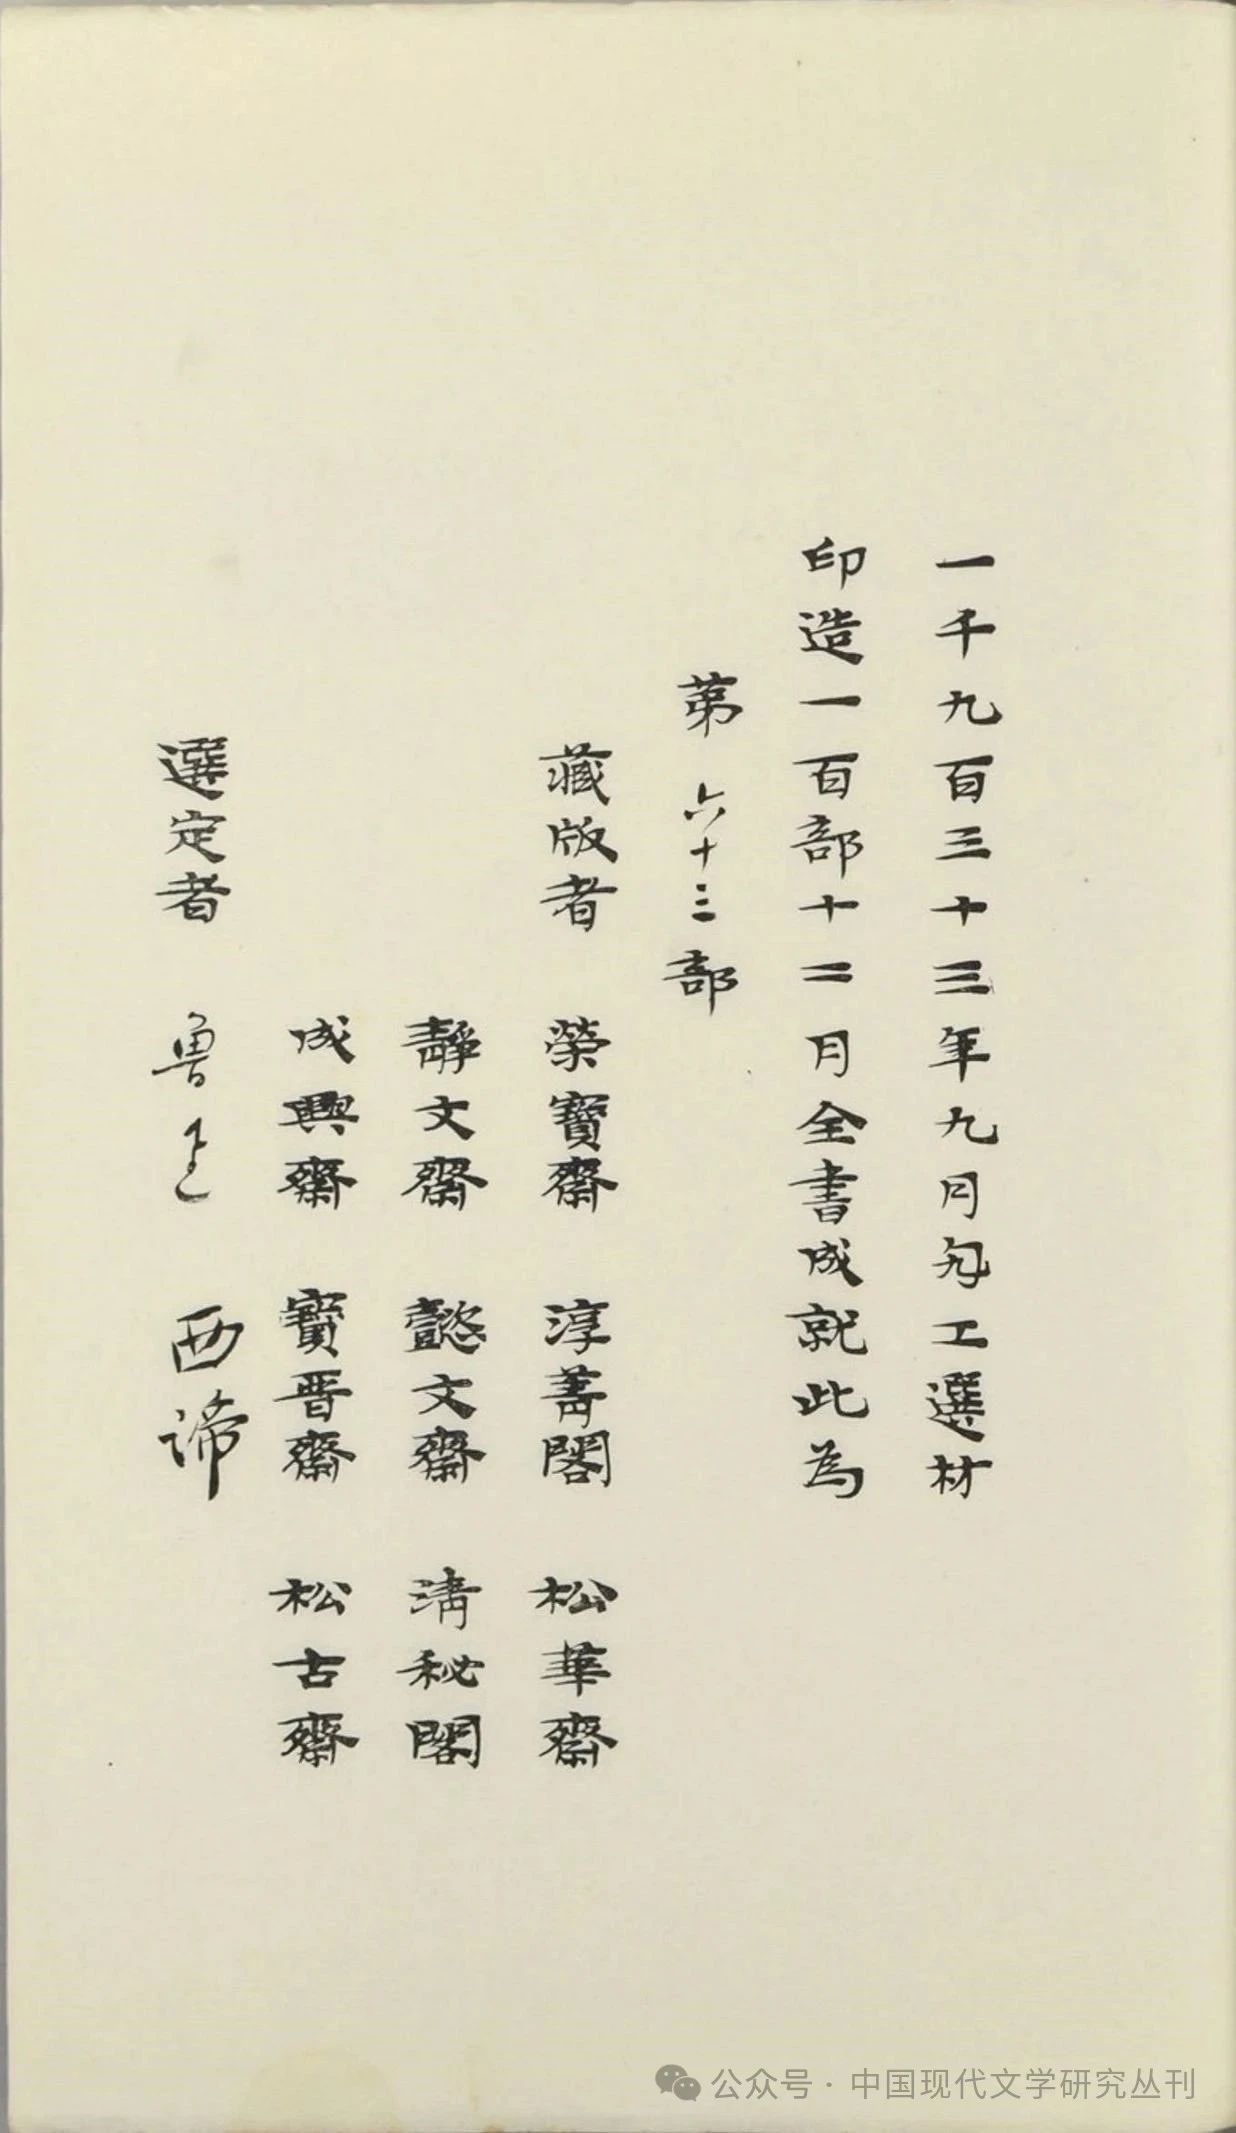 一千九百三十三年九月勼工選材
印造一百部十二月全書成就此為
第 六十三 部
藏版者 榮寶齋 淳菁閣 松華齋
靜文齋 懿文齋 清秘閣
成興齋 寶晋齋 松古齋
選定者 魯迅 西諦
公众号·中国现代文学研究丛刊